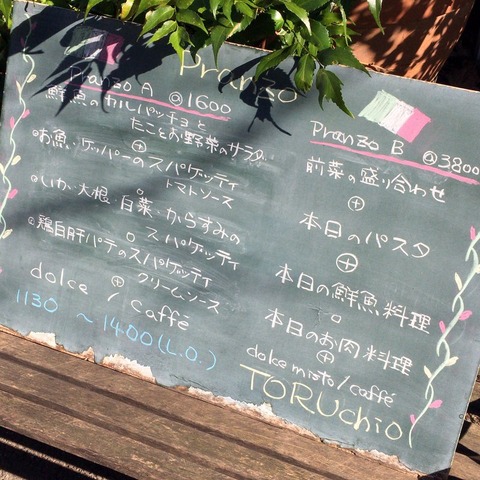 Pranzo
Pranzo A @1600
鮮魚のカルパッチョと
たことお野菜のサラダ
+
お魚・ケッパーのスパゲッティ
トマトソース
o
いか・大根・白菜・からすみの
スパゲッティ
o
鶏白肝パテのスパゲッティ
クリームソース
+
dolce / caffé
1130 ~1400(L.O.)
Pranzo B @3800
前菜の盛り合わせ
+
本日のパスタ
+
本日の鮮魚料理
o
本日のお肉料理
+
dolce misto / caffé
TORUchio